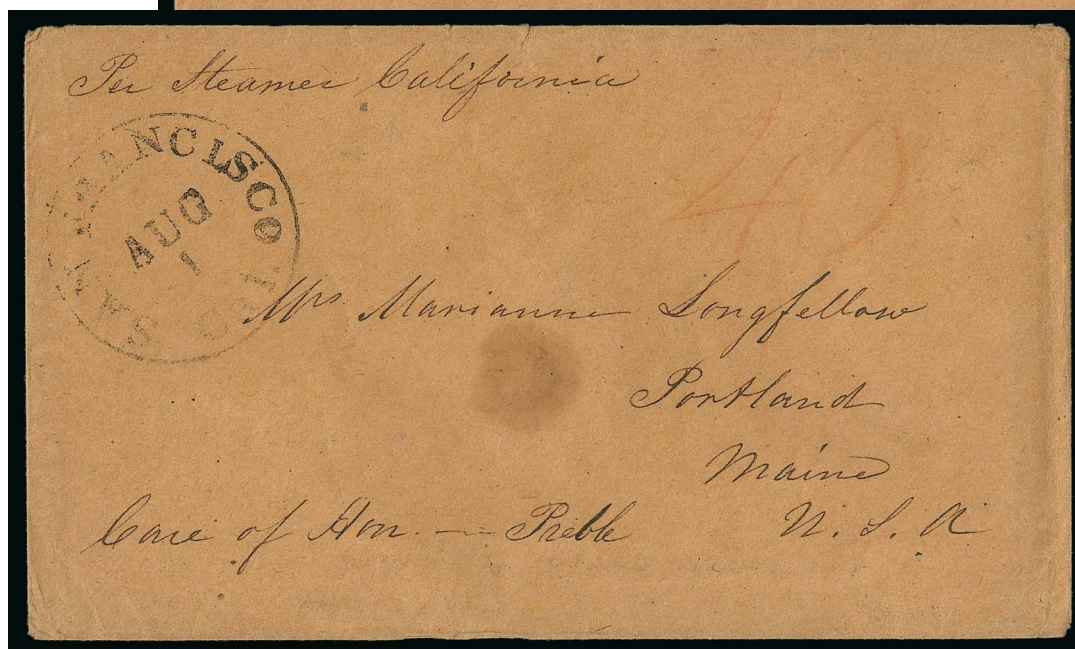 Per Steamer California
40
SAN FRANCISCO CAL
AUG
1
Mrs. Marianne Longfellow
Portland
Maine
Care of Hon. — Preble
U. S. A